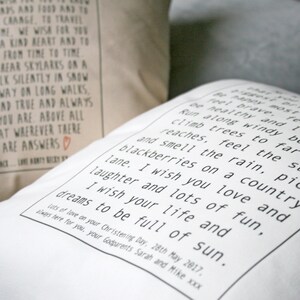 WISH FOR YOU TO KNOW
ENDS AND FOOD AND TO
CHANGE, TO TRAVEL
TIME. WE WISH FOR YOU
A KIND HEART AND TO
FROM TIME TO TIME
SKYLARKS ON A
SILENTLY IN SNOW
WAY ON LONG WALKS,
AND TRUE AND ALWAYS
YOU ARE, ABOVE ALL
THAT WHEREVER THERE
ARE ANSWERS
LOVE AUNTY
be happy and
feel brave
be healthy and
Run along windy
climb trees to far
reaches, feel the s
and smell the rain, pi
blackberries on a country
lane. I wish you love and
laughter and lots of fun,
I wish your life and
dreams to be full of sun.
Lots of love on your Christening Day, 28th May 2017,
always here for you, your Godparents Sarah and Mike xxx